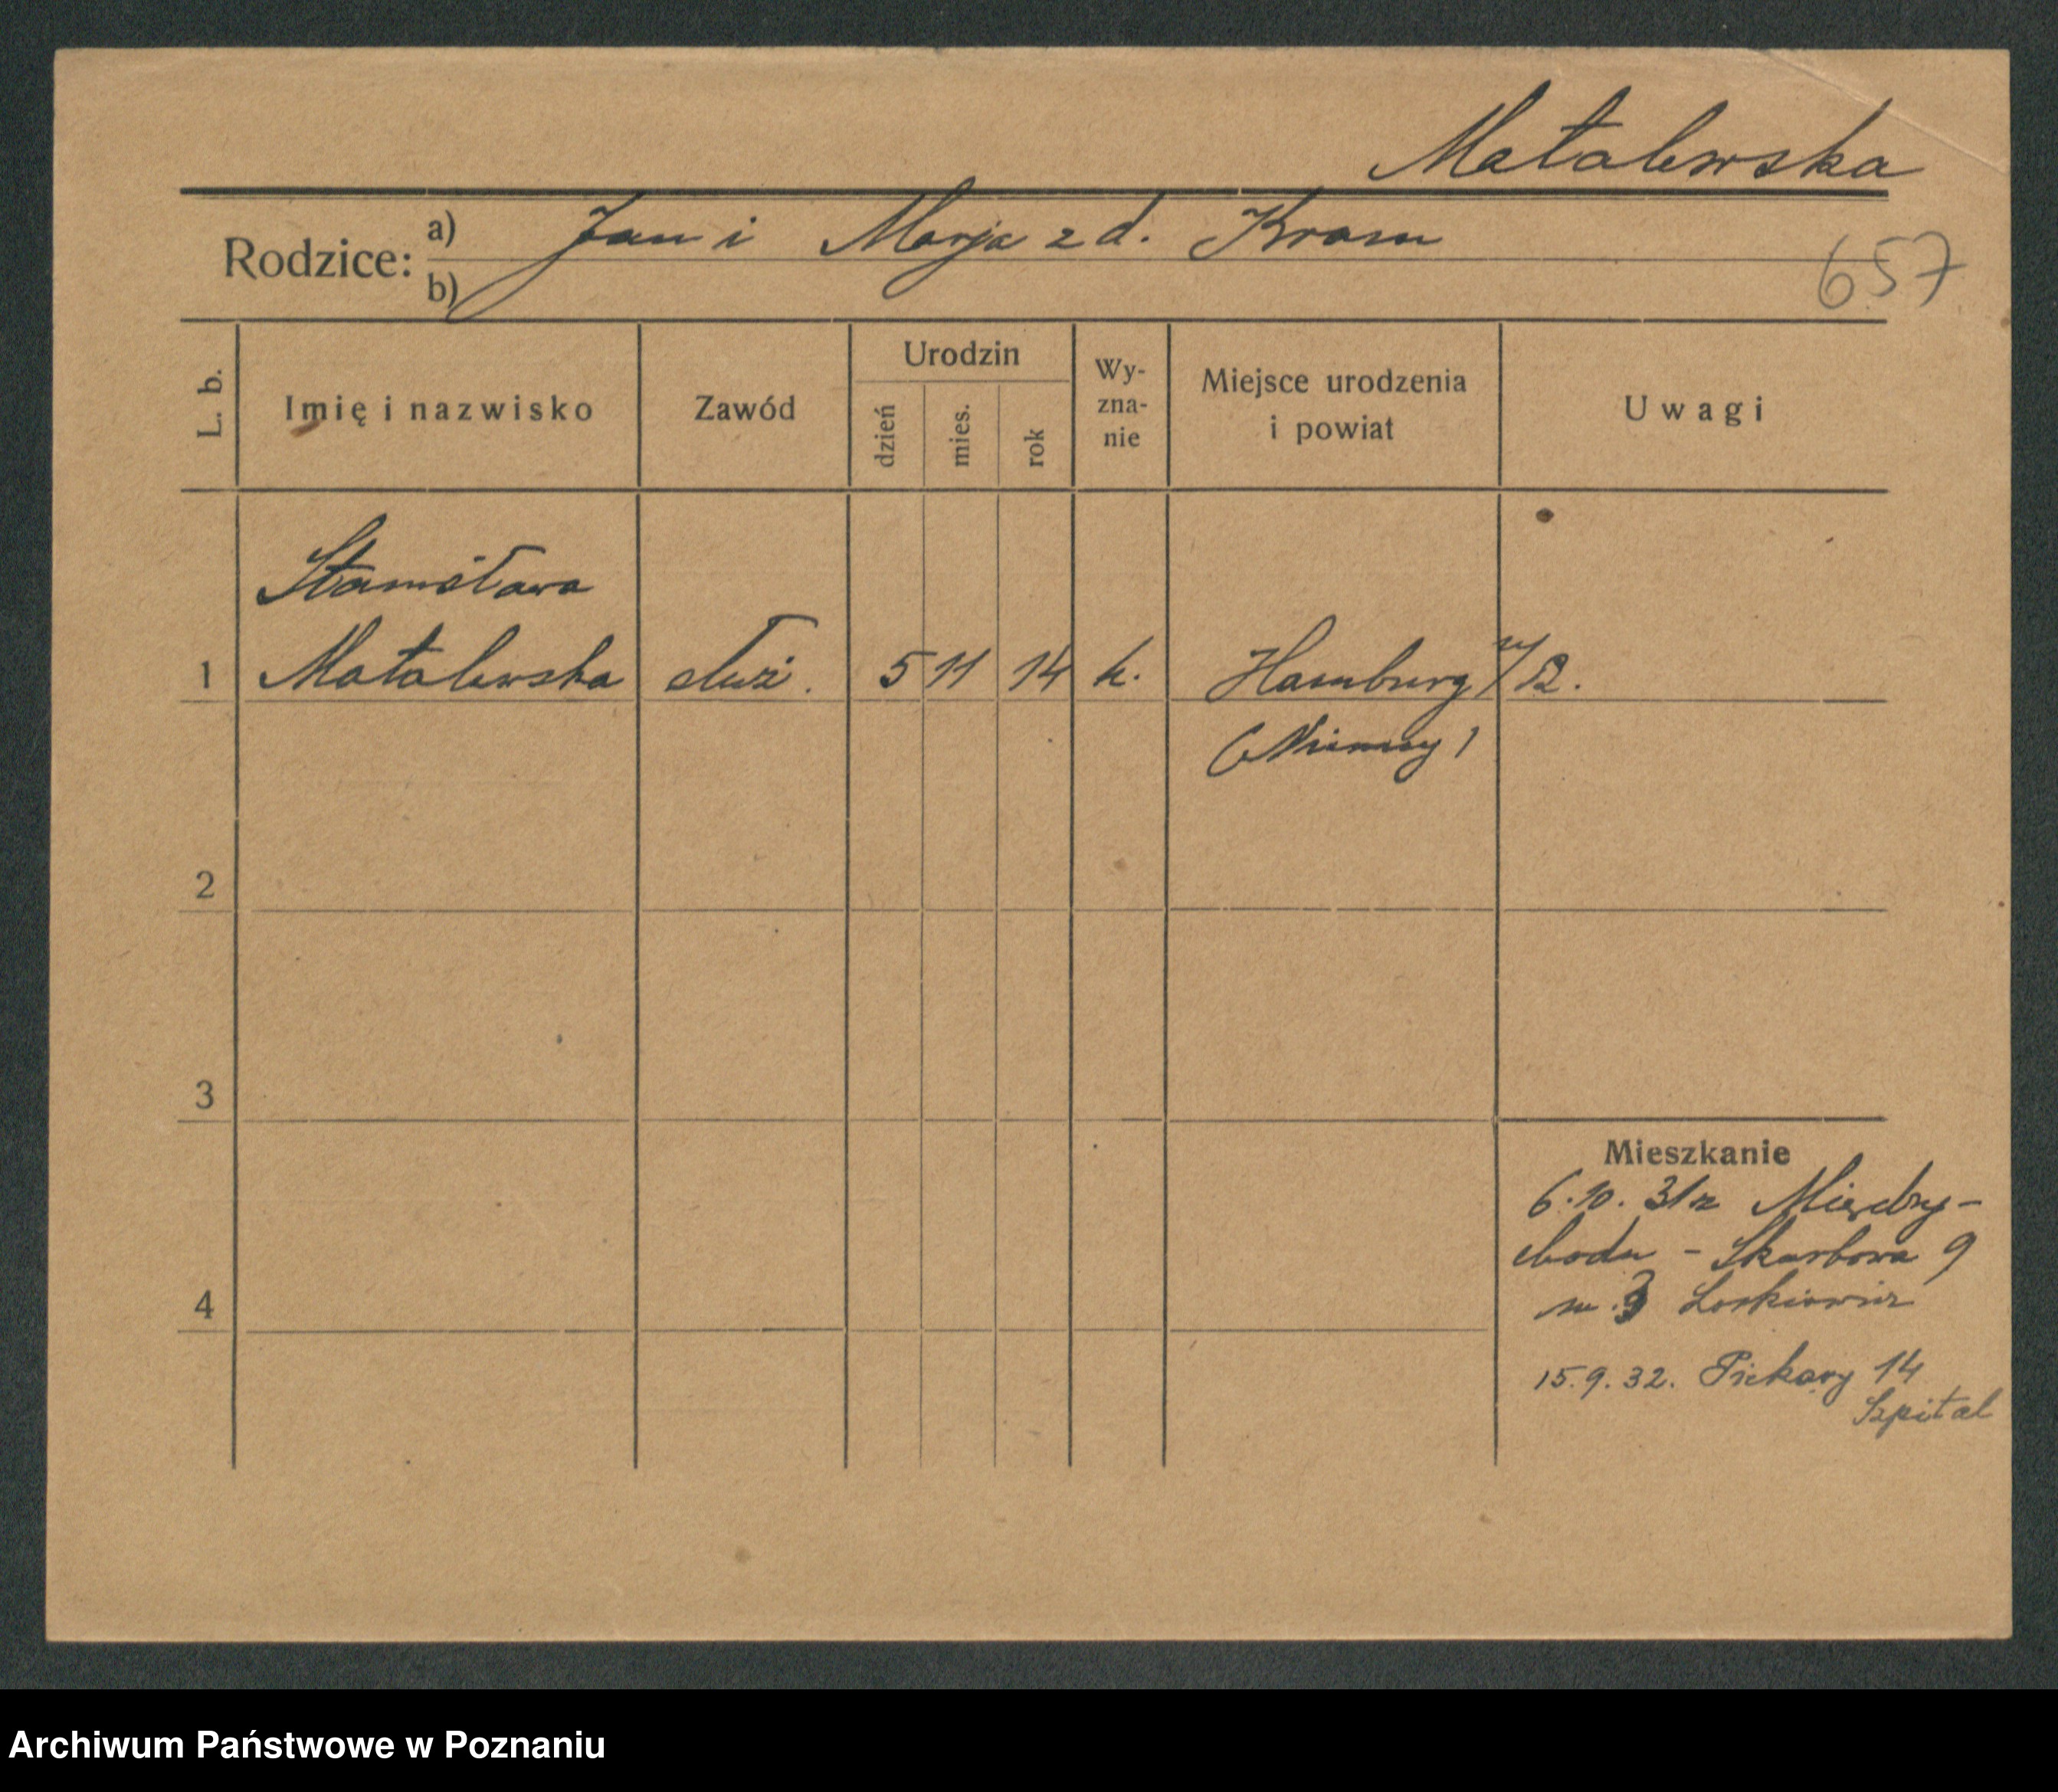 Matalewska
Rodzice: a) Jan i Marja z d. Kram
b)
657
L. b. Imię i nazwisko Zawód Urodzin dzień mies. rok Wy-zna-nie Miejsce urodzenia i powiat Uwagi
Stanisława
1 Matalewska służ. 5 11 14 k. Hamburg n/Ł.
(Niemcy)
2
3
Mieszkanie
6.10.31 z Między-
chodu - Skarbowa 9
m. 3
4
15.9.32. Piekary 14
Szpital
Archiwum Państwowe w Poznaniu